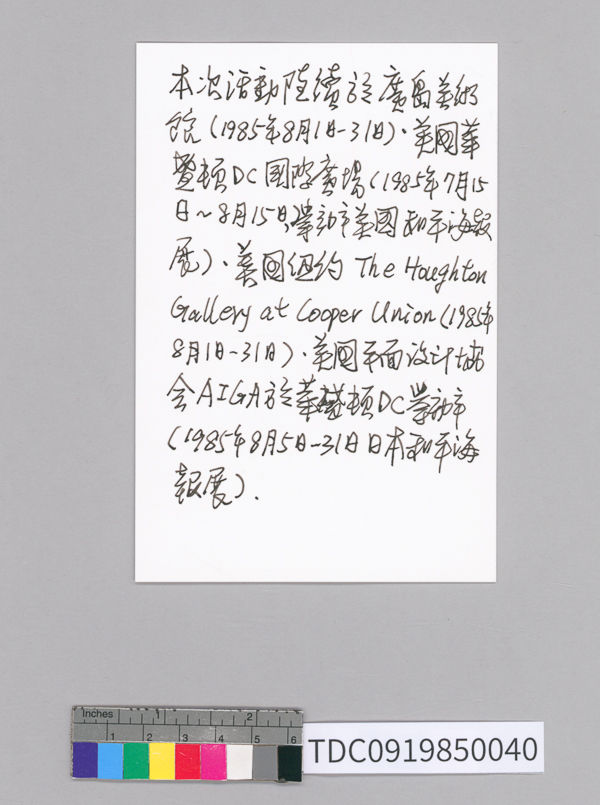 本次活動陸續於廣島美術
館(1985年8月1日-31日)·美國華
盛頓DC国際廣場(1985年7月15
日~8月15日,舉辦市美國和平海報
展)·美國紐約 The Houghton
Gallery at Cooper Union(1985年
8月1日-31日)·美國平面設計協
会AIGA於華盛頓DC舉辦市
(1985年8月5日-31日日本和平海
報展).
Inches 1 2
1 2 3 4 5 6
TDC0919850040